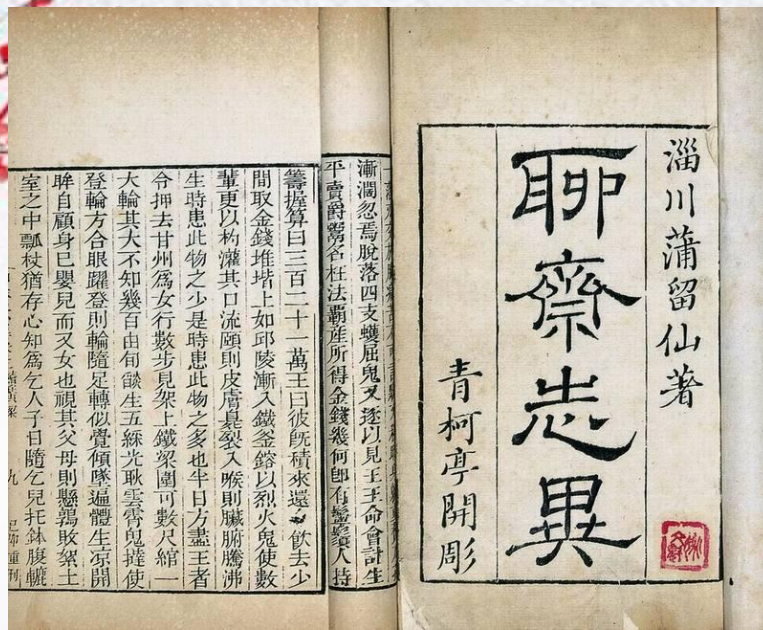 淄川蒲留仙著
聊齋志異
青柯亭開彫
漸濶忽焉脫落四支蠖屈鬼又逐以見王王命會計生
平賣爵鬻名枉法霸產所得金錢幾何卽有鬡鬚人持
籌握算曰三百二十一萬王曰彼旣積來還飲去少
間取金錢堆堦上如邱陵漸入鐵釜鎔以烈火鬼使數
輩更以杓灌其口流頤則皮膚臭裂入喉則臟腑騰沸
生時患此物之少是時患此物之多也半日方盡王者
令押去甘州爲女行數步見架上鐵梁圍可數尺綰一
大輪其大不知幾百由旬燄生五綵光耿雲霄鬼撻使
登輪方合眼躍登則輪隨足轉似覺傾墜遍體生凉開
眸自顧身已嬰兒而又女也視其父母則懸鶉敗絮土
室之中瓢杖猶存心知爲乞人子日隨乞兒托鉢腹轆
九 己卯重刊